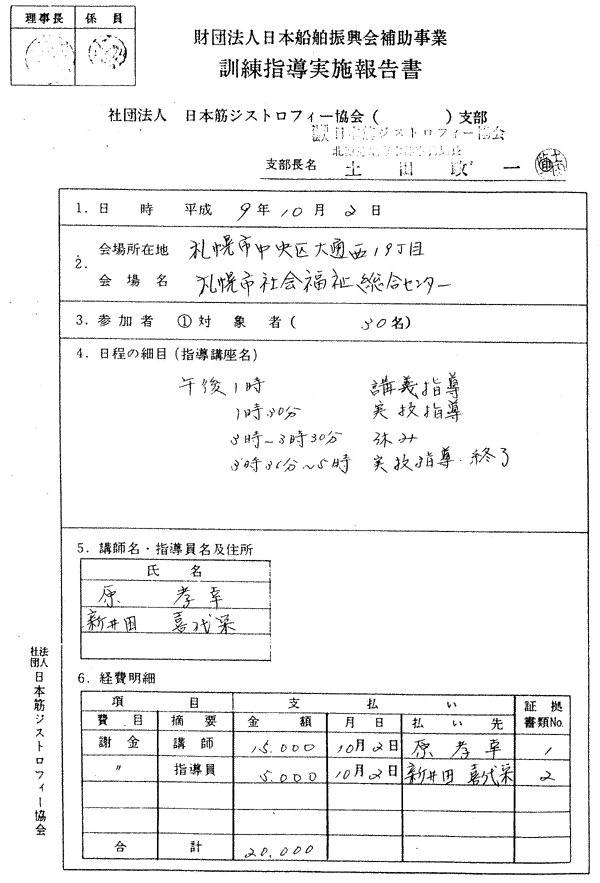 理事長 係員
財団法人日本船舶振興会補助事業
訓練指導実施報告書
社団法人 日本筋ジストロフィー協会( )支部
日本筋ジストロフィー協会
支部長名 土田政一
1. 日 時 平成 9年10月2日
2. 会場所在地 札幌市中央区大通西19丁目
会場名 札幌市社会福祉総合センター
3. 参加者 ①対象者( 30名)
4. 日程の細目(指導講座名)
午後1時 講義指導
1時30分 実技指導
3時~3時30分 休み
3時35分~5時 実技指導.終了
5. 講師名・指導員名及住所
氏名
原 孝幸
新井田 喜代栄
6. 経費明細
項目 支払い 証拠書類No.
費目 摘要 金額 月日 払い先
謝金 講師 15.000 10月2日 原 孝幸 1
〃 指導員 5.000 10月2日 新井田 喜代栄 2
合計 20.000
社団法人 日本筋ジストロフィー協会